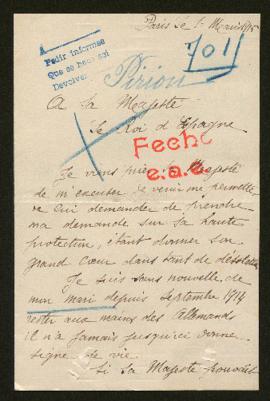 Paris le 1
Pedir informes
Devolver
701
Pirion
A Sa Majeste
Le Roi d'Espagne
Fecho
e.a.e.
Je viens prier sa Majesté
de m'excuser de venir me permettre
de lui demander de prendre
ma demande sur sa haute
protection, étant donner son
grand cœur dans tant de désolation
Je suis sans nouvelle de
mon mari depuis Septembre 1914
rester aux mains des Allemands
il n'a jamais jusqu'ici donné
signe de vie.
Si Sa Majesté pouvait